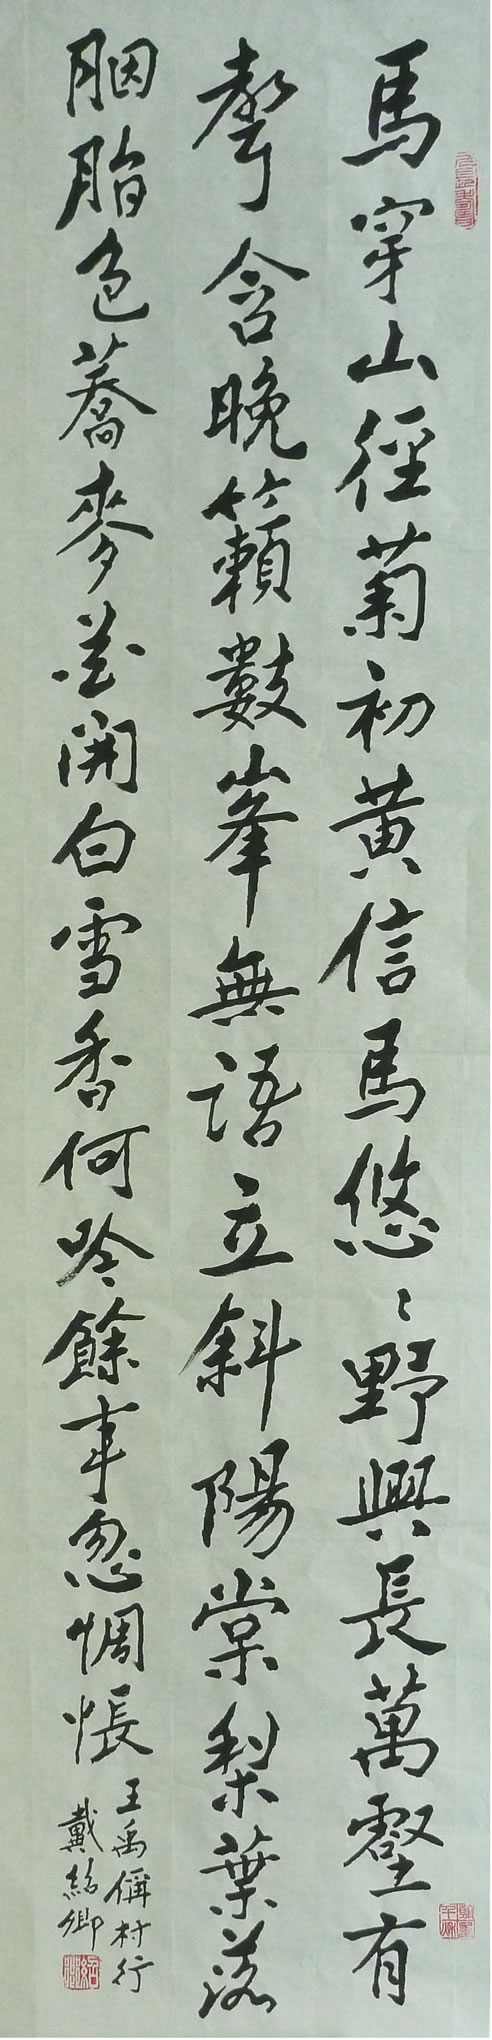 馬穿山徑菊初黄信馬悠〻野興長萬壑有
聲含晚籟數峯無語立斜陽棠梨葉落
胭脂色蕎麥花開白雪香何吟餘事忽惆悵
王禹偁村行
戴紹卿